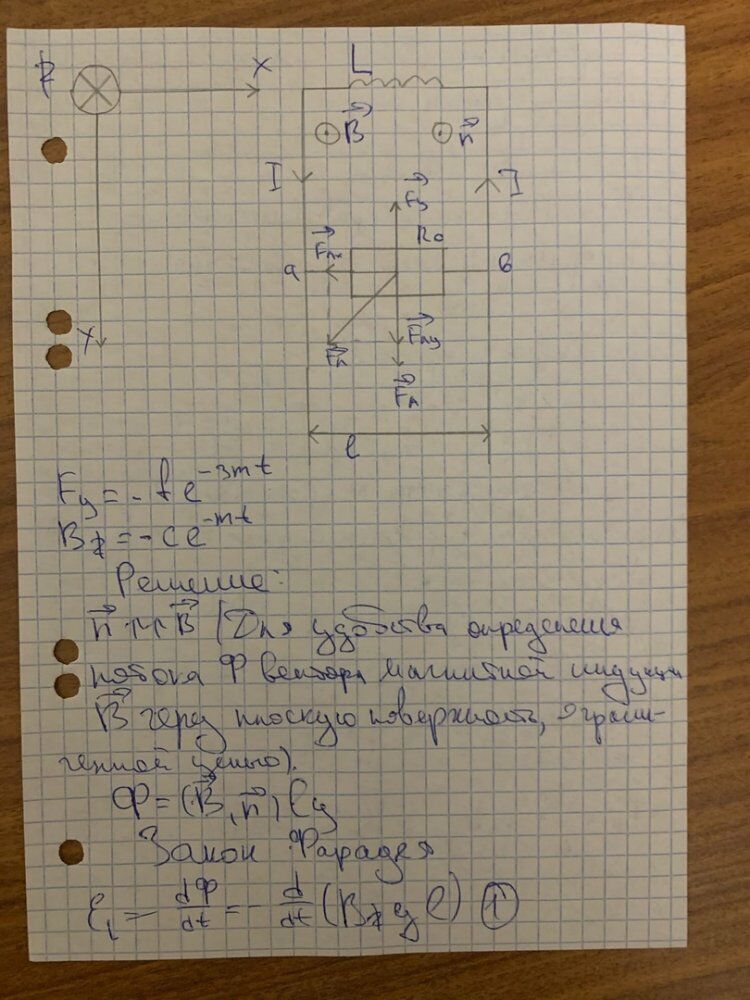 z
x
L
B
n
I
I
Fy
R0
a
Fлx
в
y
Fл
Fлy
FA
l
Fy = - f e^-3mt
Bz = - c e^-mt
Решение:
n ↑↑ B (Для удобства определения
потока Ф вектора магнитной индукции
B через плоскую поверхность, ограни-
ченной цепью).
Ф = (B, n) l y
Закон Фарадея
ε1 = - dФ/dt = - d/dt (Bz y l) (1)